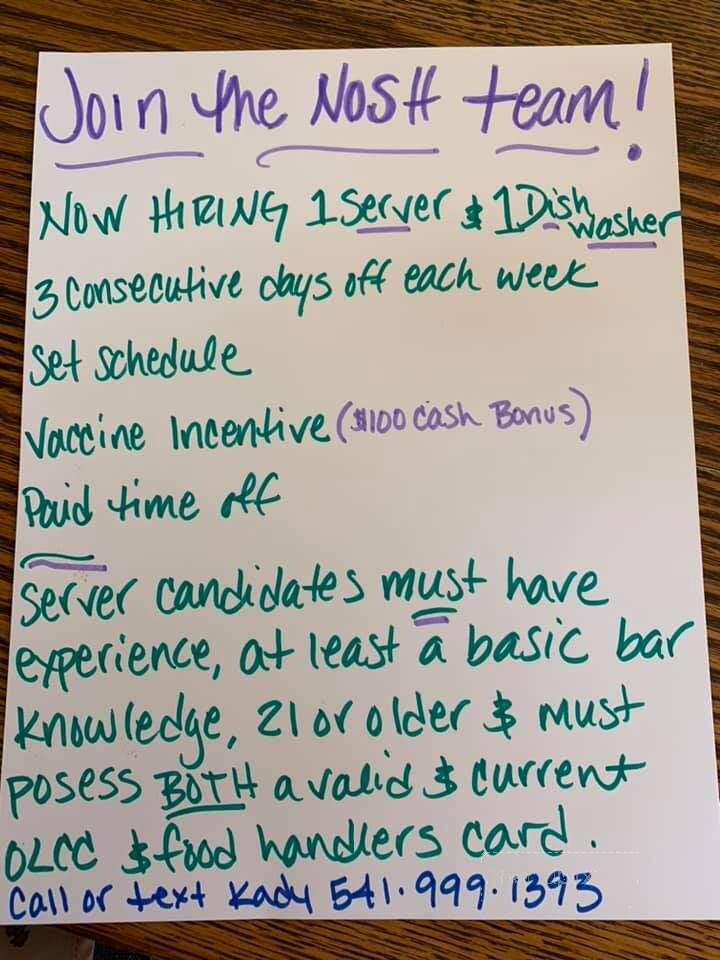 Join the NOSH team!
NOW HIRING 1 Server & 1 Dish washer
3 Consecutive days off each week
Set schedule
Vaccine Incentive ($100 cash Bonus)
Paid time off
Server candidates must have
experience, at least a basic bar
knowledge, 21 or older & must
posess BOTH a valid & current
OLCC & food handlers card.
Call or text Kady 541.999.1393